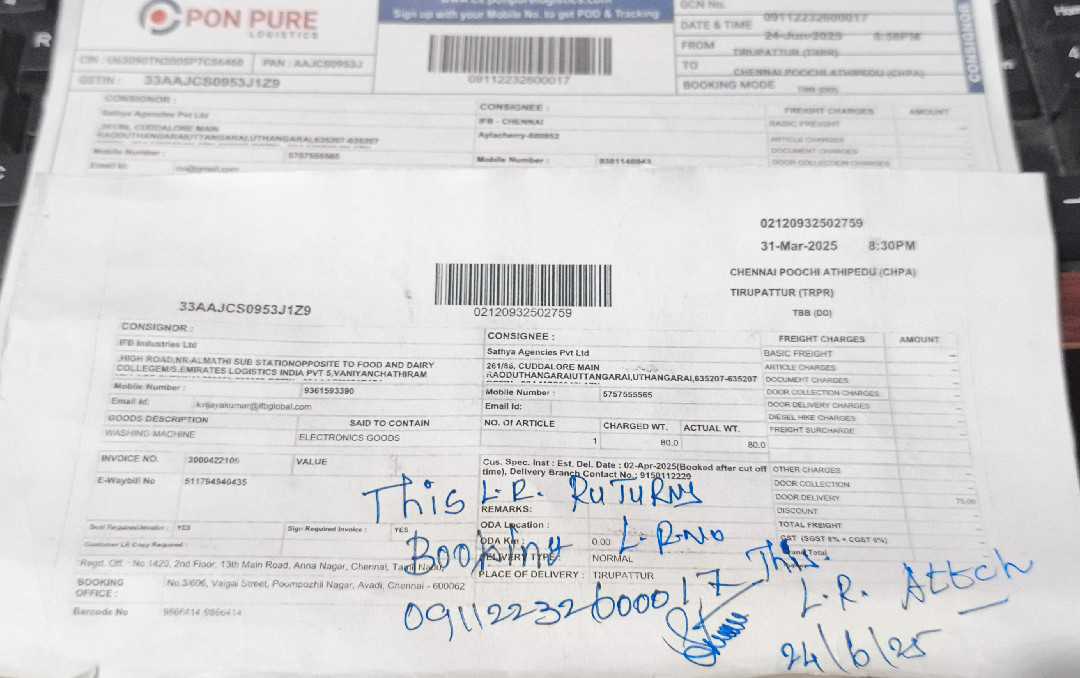 PON PURE
LOGISTICS
Sign up with your Mobile No. to get POD & Tracking
GCN No. 09112232600017
DATE & TIME 24-Jun-2025 8:58PM
FROM TIRUPATTUR (TRPR)
TO CHENNAI POOCHI ATHIPEDU (CHPA)
BOOKING MODE TBB (DD)
CONSIGNOR
09112232600017
PAN : AAJCS0953J
GSTIN : 33AAJCS0953J1Z9
CONSIGNOR :
Sathya Agencies Pvt Ltd
CUDDALORE MAIN
CONSIGNEE :
IFB - CHENNAI
FREIGHT CHARGES AMOUNT
BASIC FREIGHT
ARTICLE CHARGES
DOCUMENT CHARGES
DOOR COLLECTION CHARGES
Mobile Number : 5757555565
Mobile Number :
Email Id:
02120932502759
31-Mar-2025 8:30PM
CHENNAI POOCHI ATHIPEDU (CHPA)
TIRUPATTUR (TRPR)
TBB (DD)
02120932502759
33AAJCS0953J1Z9
CONSIGNOR :
IFB Industries Ltd
,HIGH ROAD,NR.ALMATHI SUB STATIONOPPOSITE TO FOOD AND DAIRY
COLLEGEM/S.EMIRATES LOGISTICS INDIA PVT 5,VANIYANCHATHIRAM
Mobile Number : 9361593390
Email Id: krijayakumar@ifbglobal.com
GOODS DESCRIPTION SAID TO CONTAIN
WASHING MACHINE ELECTRONICS GOODS
INVOICE NO. 3000422106 VALUE
E-Waybill No 511794940435
Sign Required Invoice : YES
Customer LR Copy Required :
Regst. Off. : No 1429, 2nd Floor, 13th Main Road, Anna Nagar, Chennai, Tamil Nadu
BOOKING OFFICE : No.3/606, Vaigai Street, Poompozhil Nagar, Avadi, Chennai - 600062
Barcode No 9866414 9866414
CONSIGNEE :
Sathya Agencies Pvt Ltd
261/56, CUDDALORE MAIN
RAODUTHANGARAIUTTANGARAI,UTHANGARAI,635207-635207
Mobile Number : 5757555565
Email Id:
NO. OF ARTICLE CHARGED WT. ACTUAL WT.
1 80.0 80.0
Cus. Spec. Inst : Est. Del. Date : 02-Apr-2025(Booked after cut off
time), Delivery Branch Contact No.: 9150112220
REMARKS:
ODA Location :
ODA Km : 0.00
DELIVERY TYPE: NORMAL
PLACE OF DELIVERY : TIRUPATTUR
FREIGHT CHARGES AMOUNT
BASIC FREIGHT
ARTICLE CHARGES
DOCUMENT CHARGES
DOOR COLLECTION CHARGES
DOOR DELIVERY CHARGES
DIESEL HIKE CHARGES
FREIGHT SURCHARGE
OTHER CHARGES
DOOR COLLECTION
DOOR DELIVERY 75.00
DISCOUNT
TOTAL FREIGHT
Grand Total
This L.R. RUTURNS
Booking L.R.NO
09112232600017 This.
L.R. Attach
24/6/25